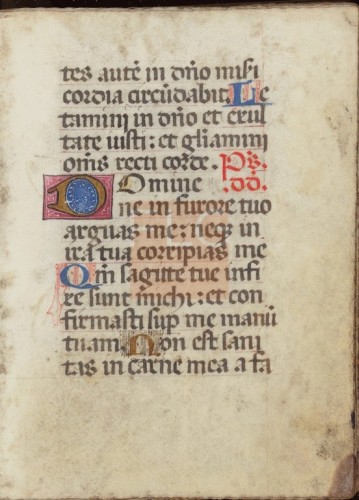 tes autē in dn̄o miſi
cordia circūdabit. Le
tamini in dn̄o et exul
tate iusti: et gl̄iamini
om̄s recti corde. Ps.
Domine dd.
ne in furore tuo
arguas me: neqꝫ in
ira tua corripias me
Qm̄ sagitte tue infi
xe sunt michi: et con
firmasti sup me manū
tuam. Non est sani
tas in carne mea a fa